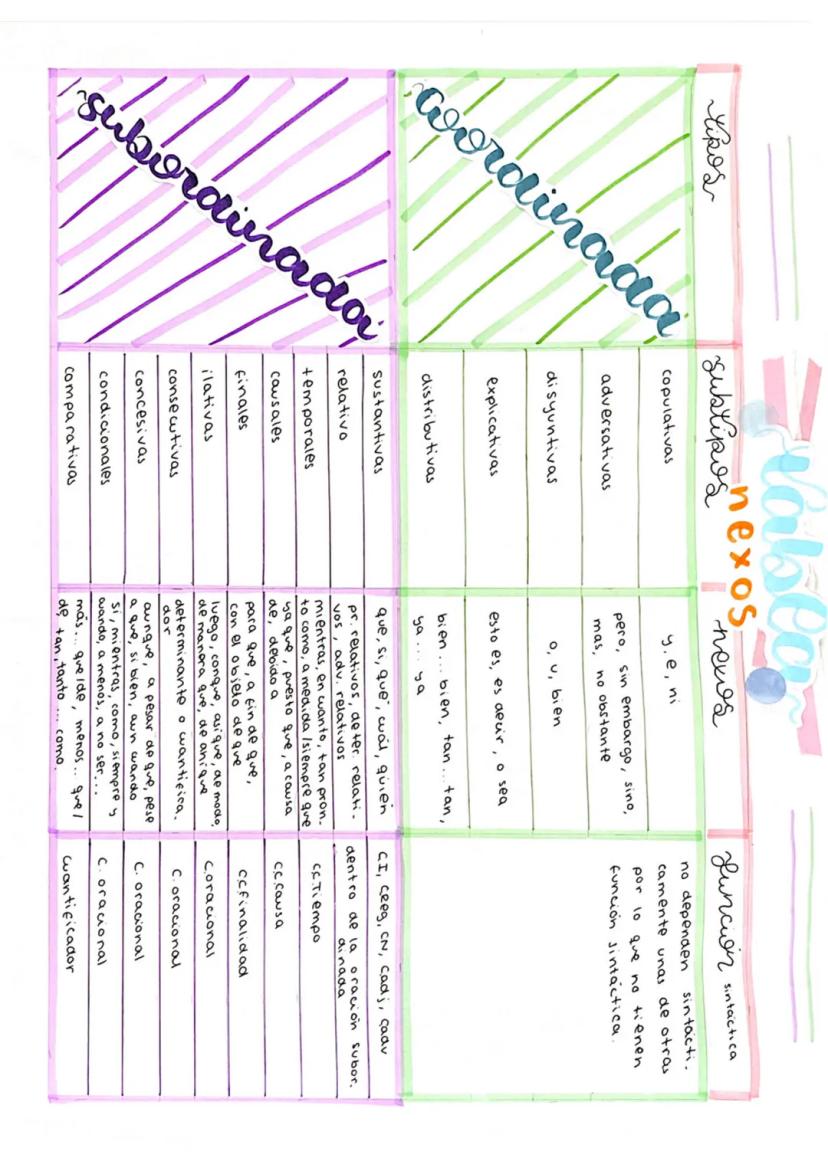 tabla
nexos
tipos
subtipos
nexos
función sintáctica
coordinada
copulativas
y, e, ni
no dependen sintácti-
camente unas de otras
por lo que no tienen
función sintáctica.
adversativas
pero, sin embargo, sino,
mas, no obstante
disyuntivas
o, u, bien
explicativas
esto es, es decir, o sea
distributivas
bien ... bien, tan ... tan,
ya ... ya
subordinada
sustantivas
que, si, qué, cuál, quién
CI, CReg, CN, Cadj, Cadv
relativo
pr. relativos, deter. relati-
vos, adv. relativos
dentro de la oración subor-
dinada
temporales
mientras, en cuanto, tan pron-
to como, a medida/siempre que
CC.Tiempo
causales
ya que, puesto que, a causa
de, debido a
CC.Causa
finales
para que, a fin de que,
con el objeto de que
CC.Finalidad
ilativas
luego, conque, así que, de modo,
de manera que, de ahí que
C.oracional
consecutivas
determinante o cuantifica-
dor
C. oracional
concesivas
aunque, a pesar de que, pese
a que, si bien, aun cuando
C. oracional
condicionales
si, mientras, como, siempre y
cuando, a menos, a no ser...
C. oracional
comparativas
más... que/de, menos... que/
de tan, tanto ... como.
cuantificador